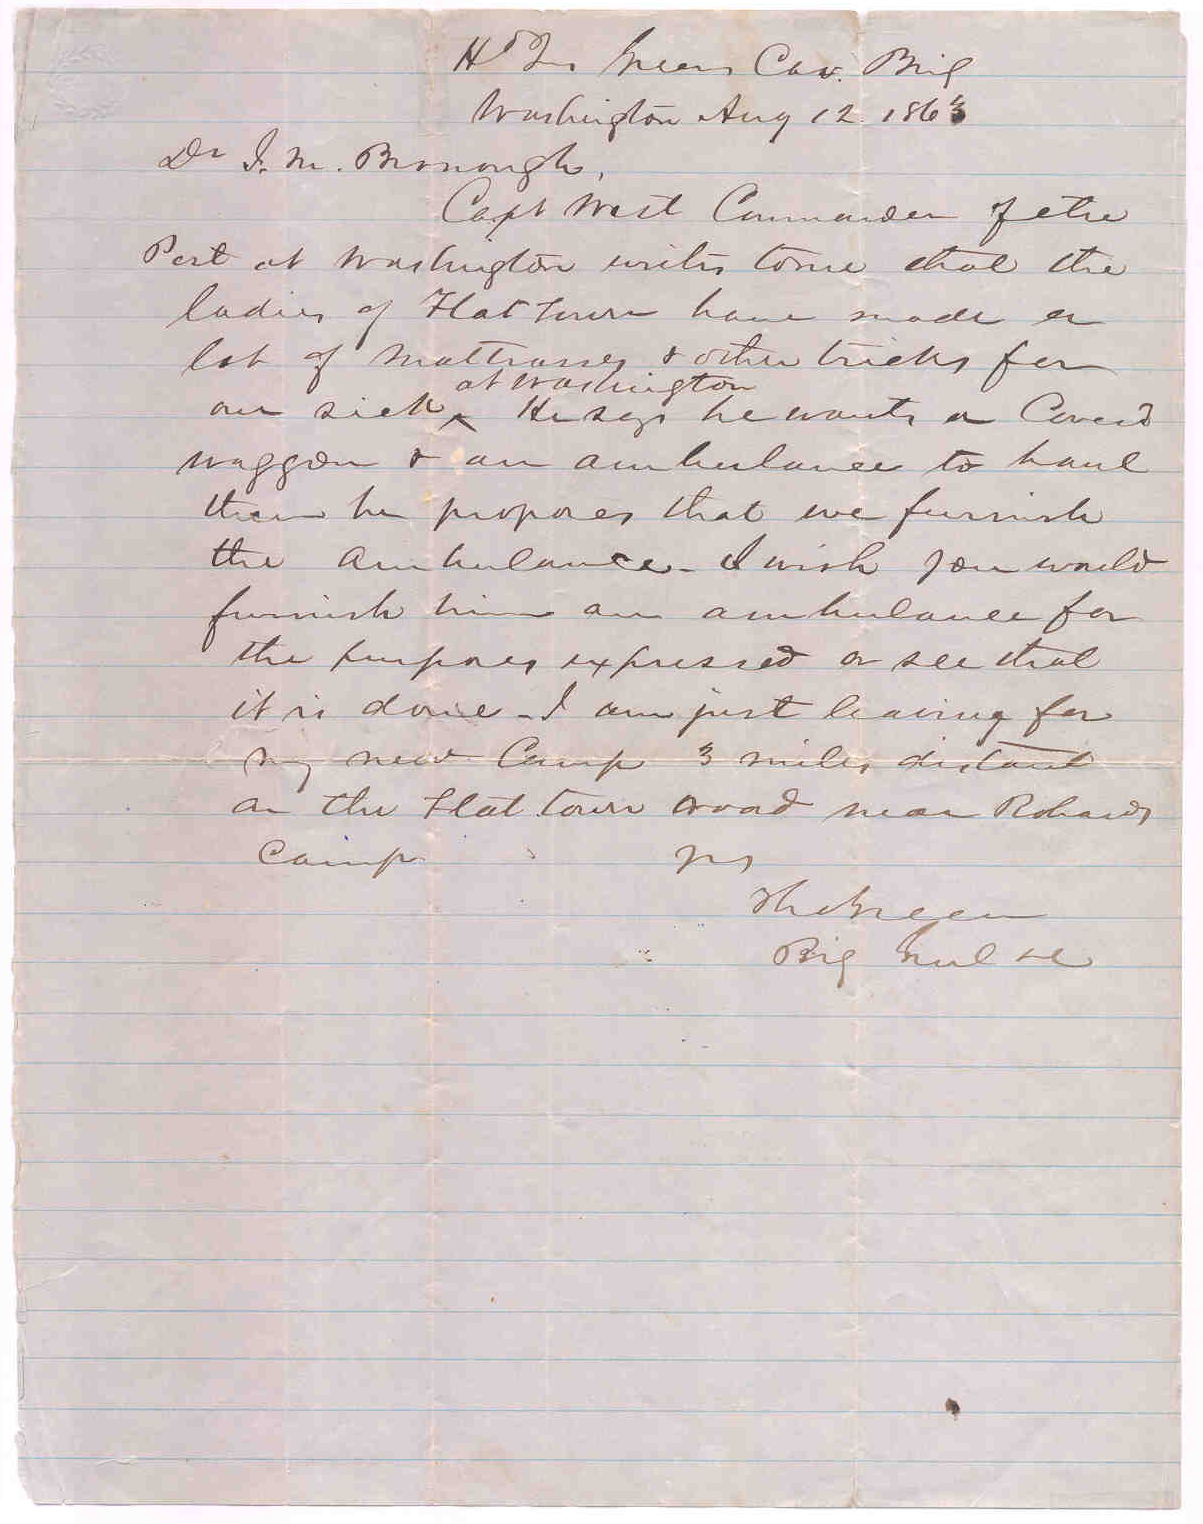 Hd Qrs Greens Cav. Brig
Washington Aug 12. 1863
Dr J. M. Bronough,
Capt West Commander of the
Post at Washington writes to me that the
ladies of Flat town have made a
lot of Mattrasses & other tricks for
at Washington
our sick ^ He says he wants a Coverd
waggon & an ambulance to haul
them he proposes that we furnish
the ambulance - I wish you would
furnish him an ambulance for
the purposes expressed or see that
it is done - I am just leaving for
my new Camp 3 miles distant
on the Flat town road near
Camp yrs
Tho Green
Brig Genl &c